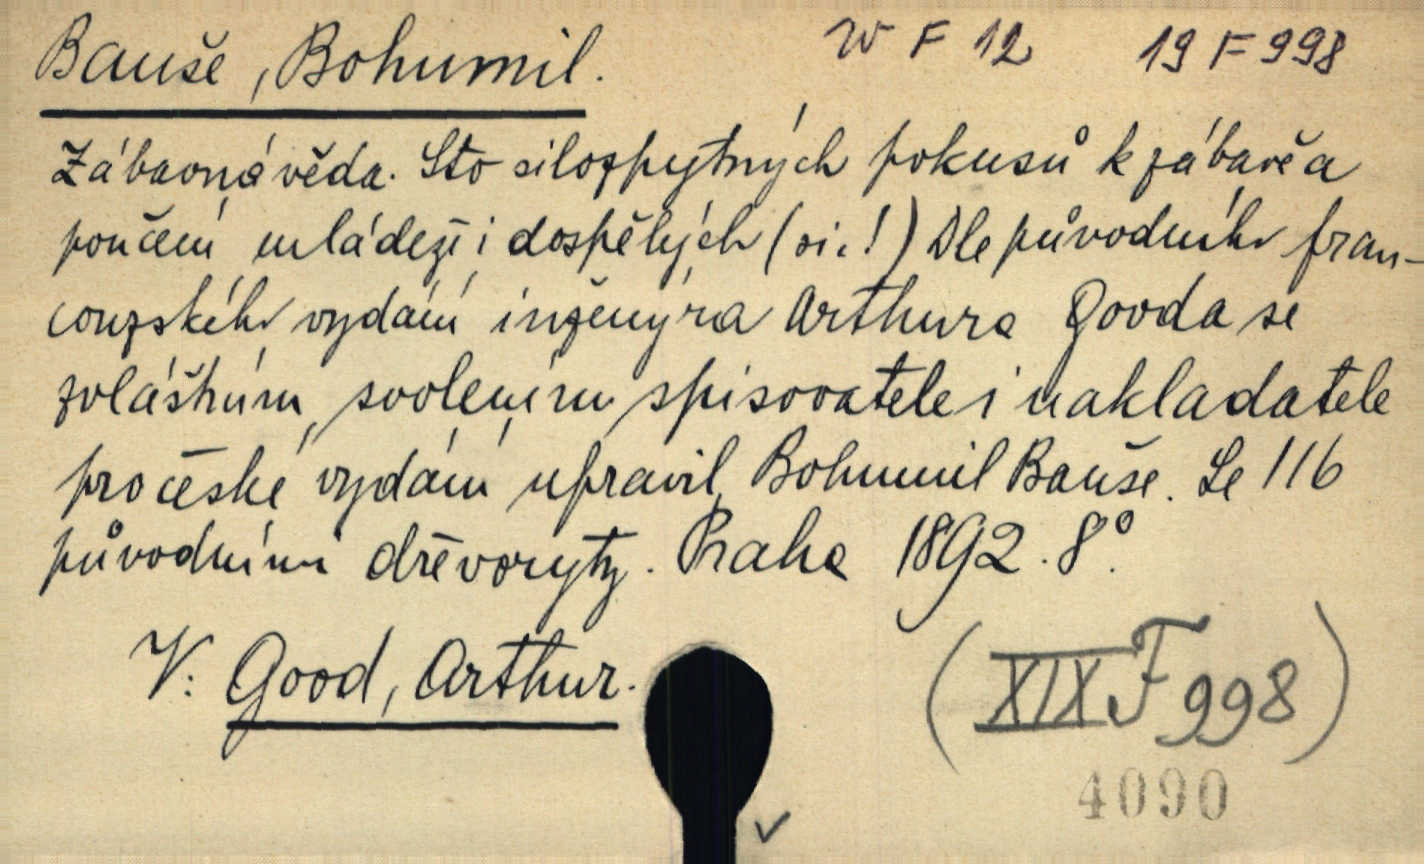 Bauše, Bohumil. W F 12 19 F 998
Zábavná věda. Sto silozpytných pokusů k zábavě a
poučení mládeži i dospělých (sic!) Dle původního fran-
couzského vydání inženýra Arthura Gooda se
zvláštním svolením spisovatele i nakladatele
pro české vydání upravil Bohumil Bauše. Se 116
původními dřevoryty. Praha 1892. 8°.
V: Good, Arthur.
(XIX F 998)
4090